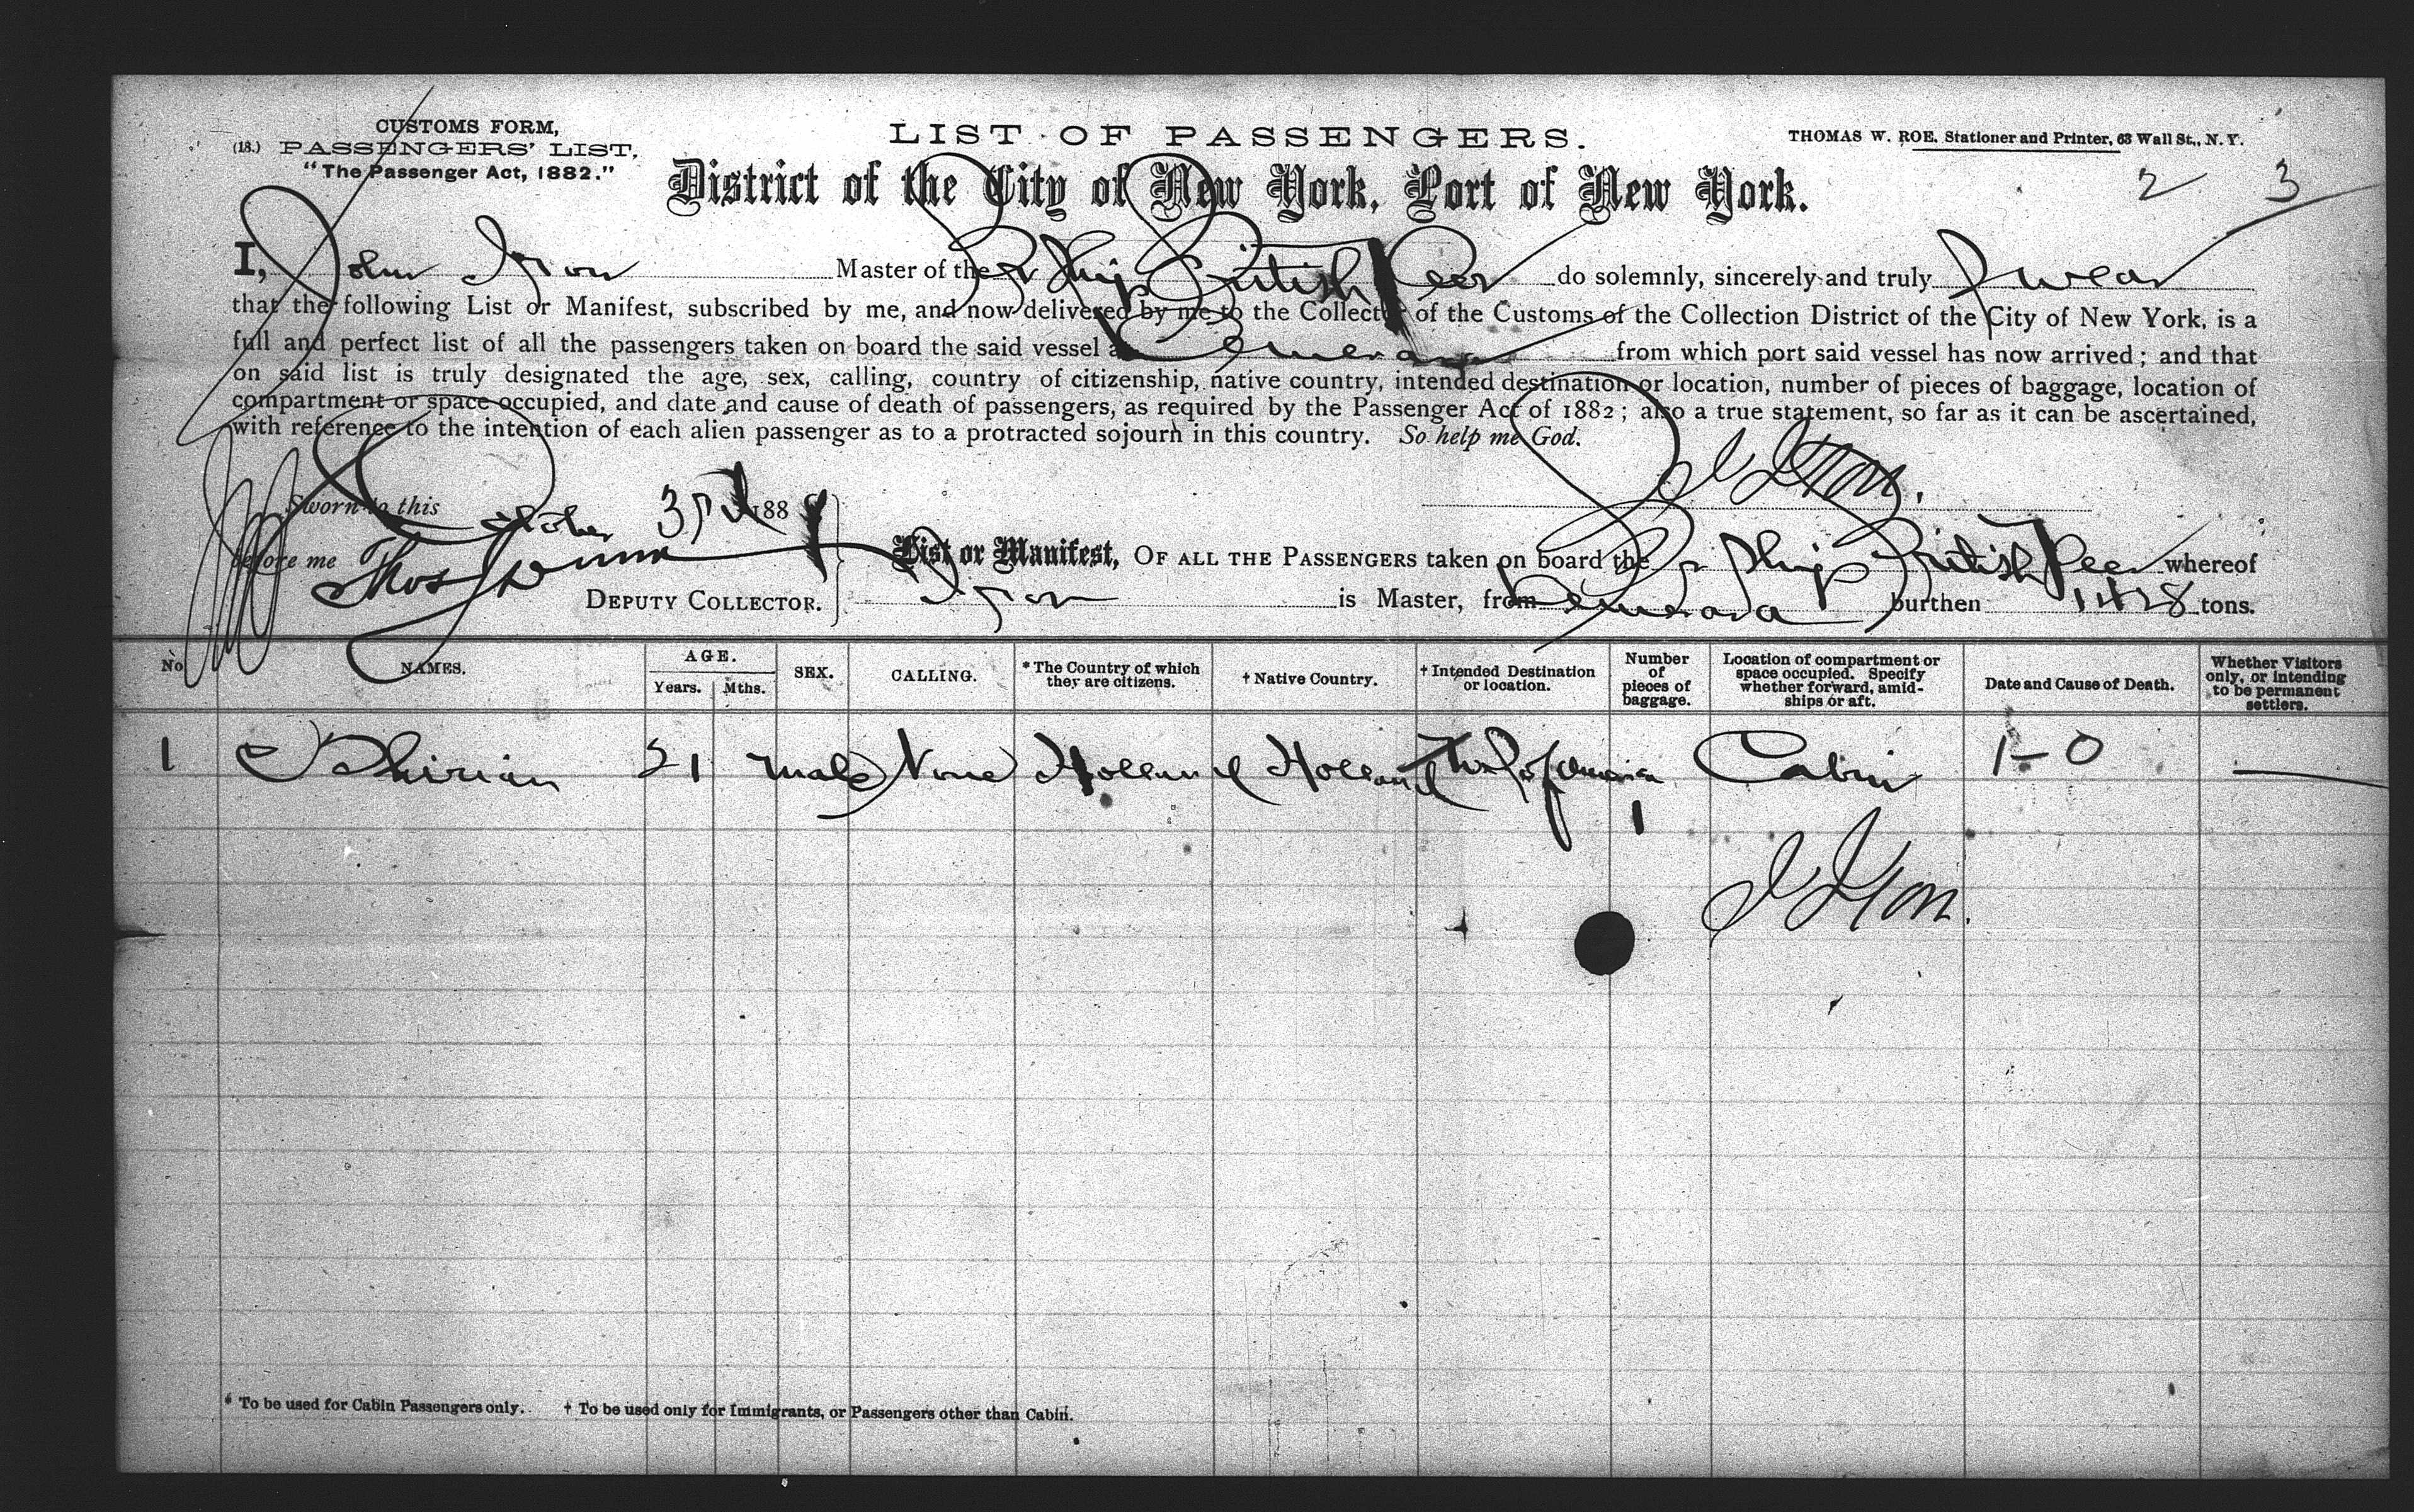 CUSTOMS FORM,
(18.) PASSENGERS' LIST,
"The Passenger Act, 1882."
LIST OF PASSENGERS.
THOMAS W. ROE. Stationer and Printer, 63 Wall St., N. Y.
District of the City of New York, Port of New York.
2 3
I, John Master of the Br Ship British Peer do solemnly, sincerely and truly Swear
that the following List or Manifest, subscribed by me, and now delivered by me to the Collector of the Customs of the Collection District of the City of New York, is a
full and perfect list of all the passengers taken on board the said vessel at Demerara from which port said vessel has now arrived; and that
on said list is truly designated the age, sex, calling, country of citizenship, native country, intended destination or location, number of pieces of baggage, location of
compartment or space occupied, and date and cause of death of passengers, as required by the Passenger Act of 1882; also a true statement, so far as it can be ascertained,
with reference to the intention of each alien passenger as to a protracted sojourn in this country. So help me God.
Sworn to this October 3rd 188
before me Thos
DEPUTY COLLECTOR.
List or Manifest, OF ALL THE PASSENGERS taken on board the Br Ship British Peer whereof
is Master, from Demerara burthen 1428 tons.
No NAMES. AGE. Years. Mths. SEX. CALLING. * The Country of which they are citizens. † Native Country. † Intended Destination or location. Number of pieces of baggage. Location of compartment or space occupied. Specify whether forward, amidships or aft. Date and Cause of Death. Whether Visitors only, or intending to be permanent settlers.
1 21 Male None Holland Holland America 1 Cabin 1-0 —
* To be used for Cabin Passengers only. † To be used only for Immigrants, or Passengers other than Cabin.